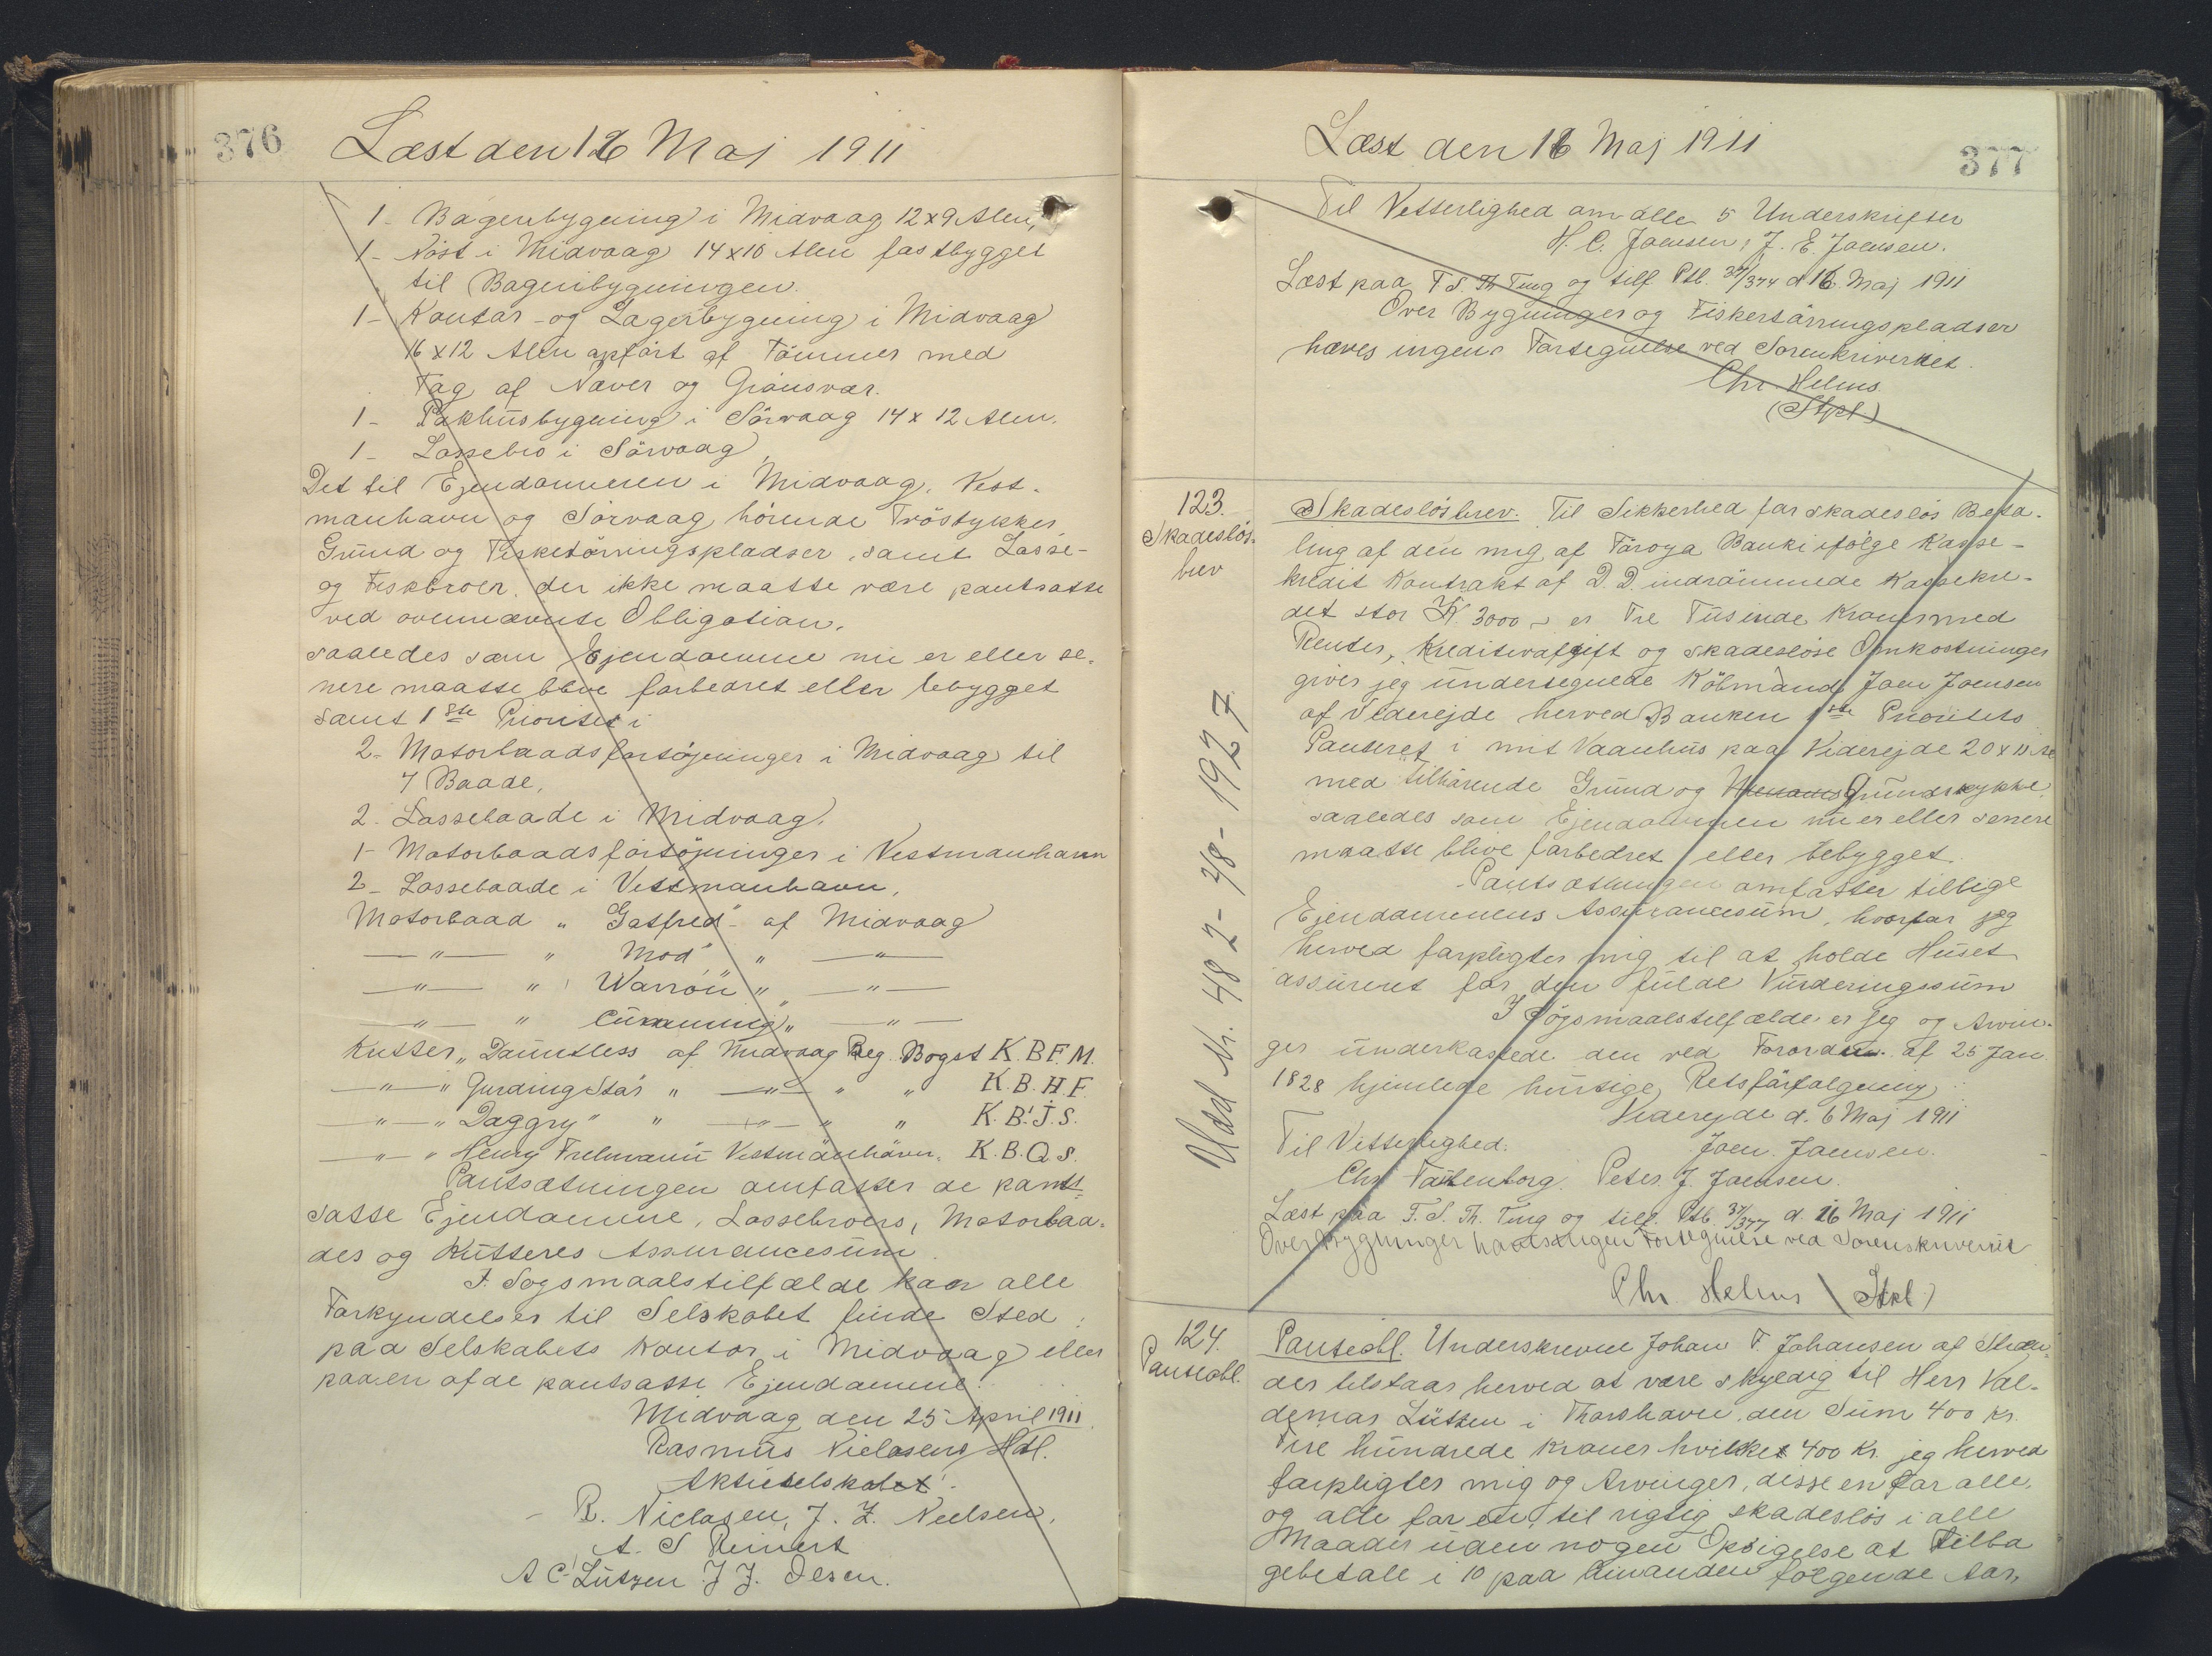 376
Læst den 16 Maj 1911
1- Bageribygning i Midvaag 12x9 Alen,
1- Nöst i Midvaag 14x10 Alen fastbygget
til Bageribygningen.
1- Kontor- og Lagerbygning i Midvaag
16x12 Alen opført af Tömmer med
Tag af Næver og Grönsvær.
1- Pakhusbygning i Sörvaag 14x12 Alen.
1- Lossebro i Sörvaag
Det til Ejendommen i Midvaag, Vest-
manhavn og Sörvaag hörende Tröstykker
Grund og Fisketörringspladser, samt Losse-
og Fiskbroer, der ikke maatte være pantsatte
ved ovennævnte Obligation,
saaledes som Ejendomme nu er eller se-
nere maatte blive forbedret eller bebygget
samt 1ste Prioritet i
2- Motorbaadsfortöjninger i Midvaag til
7 Baade,
2- Lossebaade i Midvaag,
1- Motorbaadsfortöjninger i Vestmanhavn
2- Lossebaade i Vestmanhavn,
Motorbaad „ Gatfred" af Midvaag
—"— „ Mod" „ —"—
—"— „ Warróu" „ —"—
—"— „ Cumming „ —"—
Kutter „ Dauntless af Midvaag Reg. Bogst K.B.F.M.
—"— „ Guiding Star " —"— " " K.B.H.F.
—"— „ Daggry" " —"— " " K.B.J.S.
—"— „ Henry Freemann Vestmanhavn. K.B.Q.S.
Pantsætningen omfatter de pant-
satte Ejendomme, Lossebroers, Motorbaa-
des og Kutteres Assurancesum.
I Sogsmaalstilfælde kan alle
Forkyndelser til Selskabet finde Sted
paa Selskabets Kontor i Midvaag eller
paa en af de pantsatte Ejendomme.
Midvaag den 25 April 1911
Rasmus Niclasens Hdl.
Aktieselskabet
R. Niclasen, J. Z. Nielsen,
A. S Reinert
A C. Lützen J J. Olsen.
Læst den 16 Maj 1911
377
Til Vetterlighed om alle 5 Underskrifter
H. C. Joensen, J. E. Joensen.
Læst paa F. S. Th Ting og tilf Ptb. 37/374 d 16 Maj 1911
Over Bygninger og Fisketörringspladser
haves ingen Fortegnelse ved Sorenskriveriet.
Chr Helms
(Stpl)
123.
Skadeslös-
brev
Skadeslösbrev. Til Sikkerhed for skadeslös Beta-
ling af den mig af Föroya Banki ifölge Kasse-
kredit Kontrakt af D.D. indrömmede Kassekre-
det stor Kr. 3000 - er Tre Tusinde Kroner med
Renter, Kreditorafgift og skadeslöse Omkostninger
giver jeg undertegnede Köbmand Joen Joensen
af Viderejde herved Banken 1ste Prioritets
Panteret i mit Vaanhus paa Viderejde 20x11 Al
med tilhörende Grund og Grundstykke
saaledes som Ejendommen nu er eller senere
maatte blive forbedret eller bebygget.
Pantsætningen omfatter tillige
Ejendommens Assurancesum, hvorfor jeg
herved forpligter mig til at holde Huset
assureret for den fulde Vurderingssum
I Sögsmaalstilfælde er jeg og Arvin-
ger underkastede den ved Forordn. af 25 Jan
1828 hjemlede hurtige Retsforfölgning
Viderejde d. 6 Maj 1911
Til Vetterlighed. Joen Joensen.
Chr Faütenborg. Peter J. Joensen.
Læst paa F. S. Th. Ting og tilf. Ptb. 37/377 d. 16 Maj 1911
Over Bygninger haves ingen Fortegnelse ved Sorenskriveriet
Chr. Helms (Stpl)
Udsl Nr. 482-48-1927
124.
Panteobl.
Panteobl. Underskrevne Johan F. Johansen af Stræn-
der tilstaar herved at være skyldig til Herr Val-
demar Lützen i Thorshavn, den Sum 400 Kr.
Fire hundrede Kroner hvilket 400 Kr. jeg herved
forpligter mig og Arvinger, disse en for alle,
og alle for een, til rigtig skadeslös i alle
Maader uden nogen Opsigelse at tilba
gebetale i 10 paa hinanden fölgende Aar,